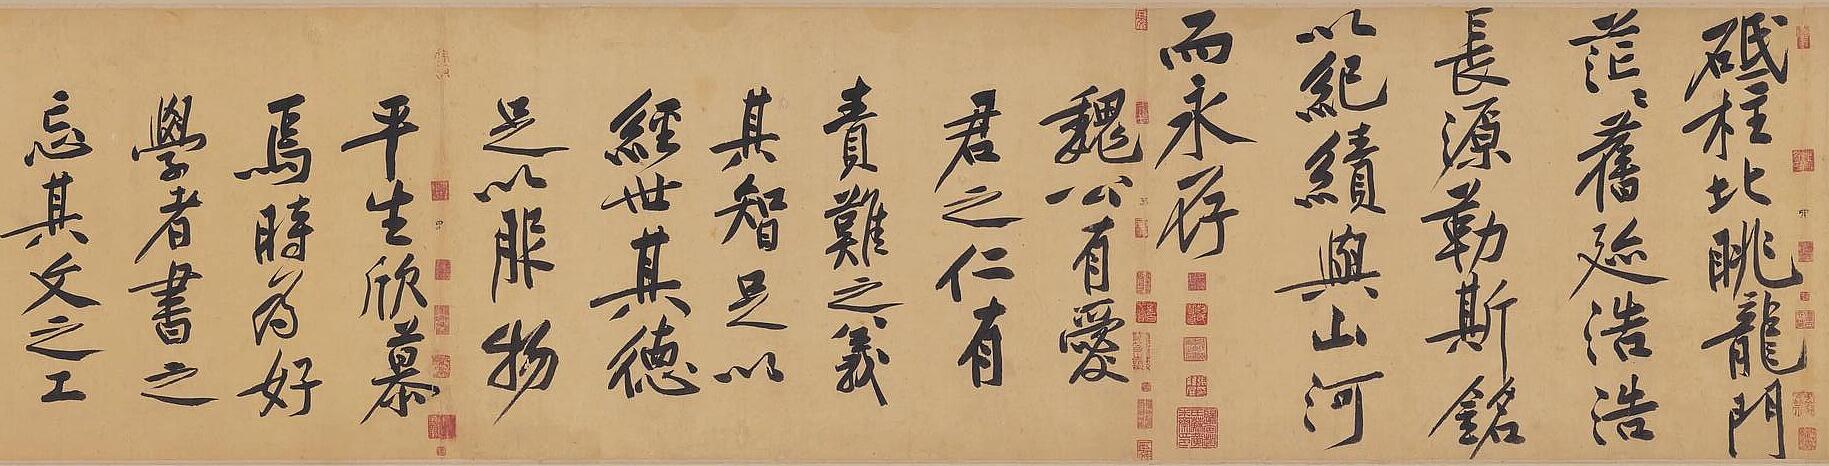 砥柱北眺龍門
茫〻舊迹浩浩
長源勒斯銘
以紀績與山河
而永存
魏公有愛
君之仁有
責難之義
其智足以
經世其德
足以服物
平生欣慕
焉時為好
學者書之
忘其文之工